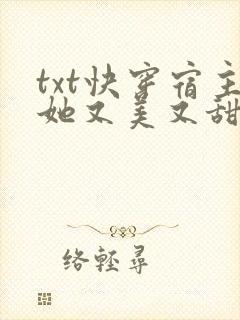 txt快穿宿主
她又美又甜
络轻尋